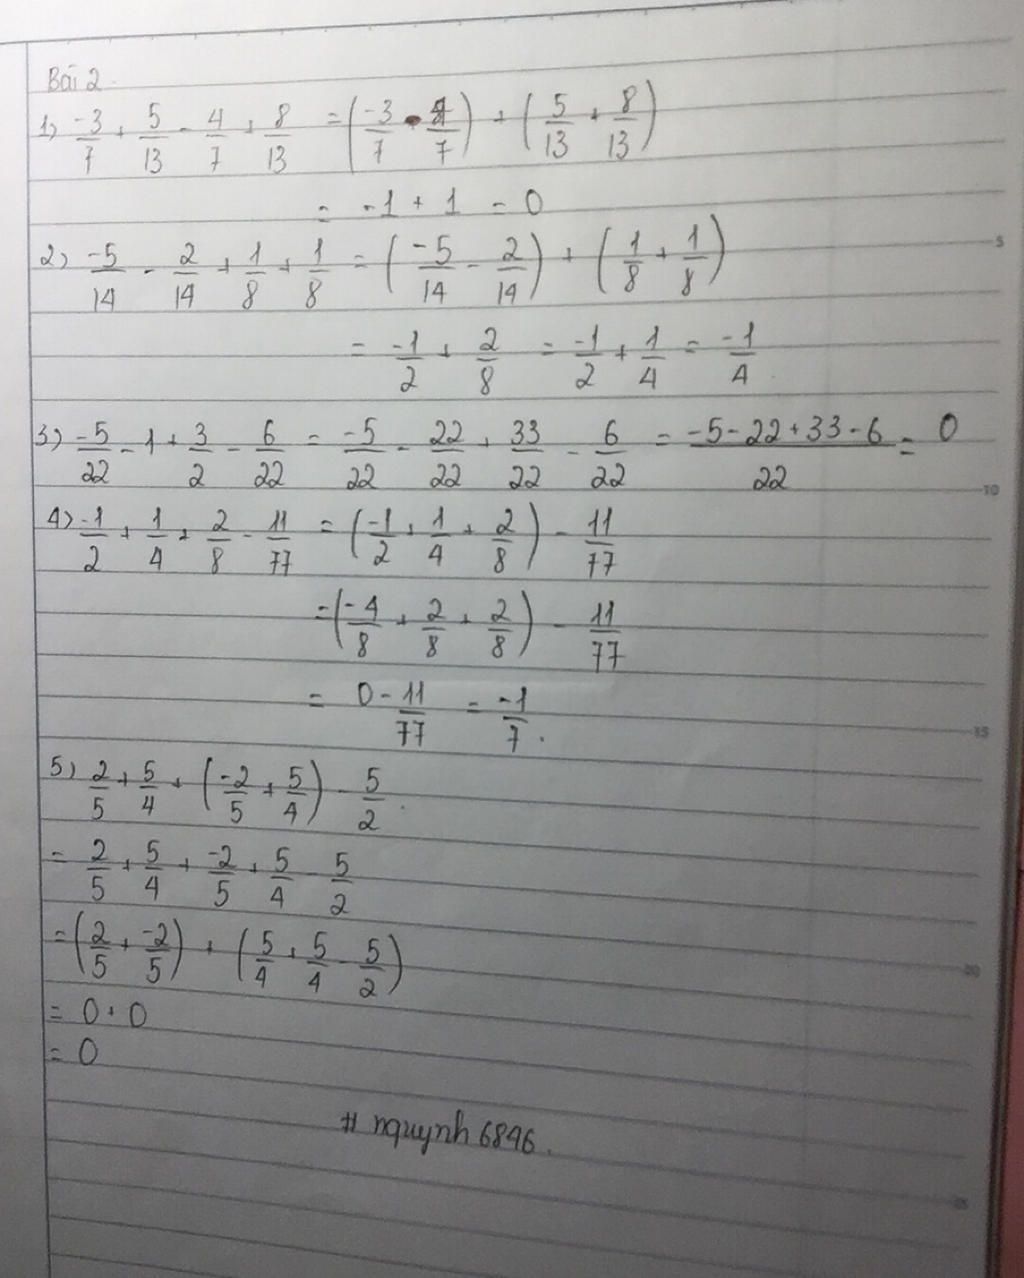 Bài 2.
1) -3/7 + 5/13 - 4/7 + 8/13 = (-3/7 - 4/7) + (5/13 + 8/13)
= -1 + 1 = 0
2) -5/14 - 2/14 + 1/8 + 1/8 = (-5/14 - 2/14) + (1/8 + 1/8)
= -1/2 + 2/8 = -1/2 + 1/4 = -1/4
3) -5/22 - 1 + 3/2 - 6/22 = -5/22 - 22/22 + 33/22 - 6/22 = (-5-22+33-6)/22 = 0
4) -1/2 + 1/4 + 2/8 - 11/77 = (-1/2 + 1/4 + 2/8) - 11/77
= (-4/8 + 2/8 + 2/8) - 11/77
= 0 - 11/77 = -1/7.
5) 2/5 + 5/4 + (-2/5 + 5/4) - 5/2.
= 2/5 + 5/4 + -2/5 + 5/4 - 5/2
= (2/5 + -2/5) + (5/4 + 5/4 - 5/2)
= 0 + 0
= 0
# nquynh 6846.
5
10
15
20